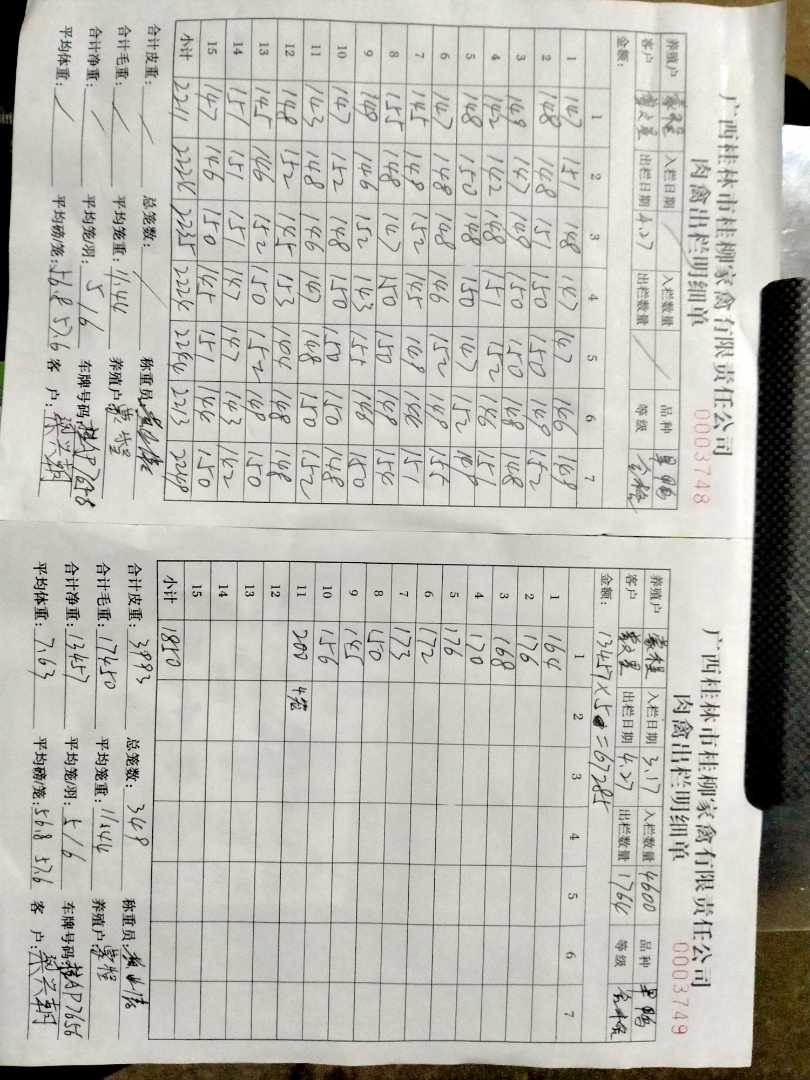 广西桂林市桂柳家禽有限责任公司
肉禽出栏明细单 0003748
养殖户 入栏日期 入栏数量 品种
客户 出栏日期 4.27 出栏数量 等级 合格
金额:
1 2 3 4 5 6 7
1 147 151 148 147 147 146 148
2 148 148 151 150 150 149 152
3 149 147 149 150 150 148 148
4 142 142 148 151 152 146 156
5 148 150 148 150 147 152
6 147 148 148 146 152 149 155
7 145 148 152 145 148 146 151
8 155 148 147 150 150 148 154
9 149 146 152 143 155 146 150
10 147 152 148 150 150 150 148
11 143 148 146 147 148 150 152
12 148 152 145 153 148 148
13 145 146 152 150 152 149 150
14 151 151 151 147 147 143 142
15 147 146 150 145 151 146 150
小计 2211 2235 2224 2213 2248
合计皮重: 总笼数: 称重员:
合计毛重: 平均笼重: 11.44 养殖户:
合计净重: 平均笼/羽: 5/6 车牌号码: 桂AP7658
平均体重: 平均磅/笼: 56.8 57.6 客户: 梁兴朝
广西桂林市桂柳家禽有限责任公司
肉禽出栏明细单 0003749
养殖户 入栏日期 3.17 入栏数量 4600 品种
客户 出栏日期 4.27 出栏数量 1764 等级 合格
金额: 13457×5=67285
1 2 3 4 5 6 7
1 164
2 176
3 168
4 170
5 176
6 172
7 173
8 150
9 145
10 156
11 200 4笼
12
13
14
15
小计 1850
合计皮重: 3993 总笼数: 349 称重员:
合计毛重: 17450 平均笼重: 11.44 养殖户:
合计净重: 13457 平均笼/羽: 5/6 车牌号码: 桂AP7656
平均体重: 7.63 平均磅/笼: 56.8 57.6 客户: 梁兴朝